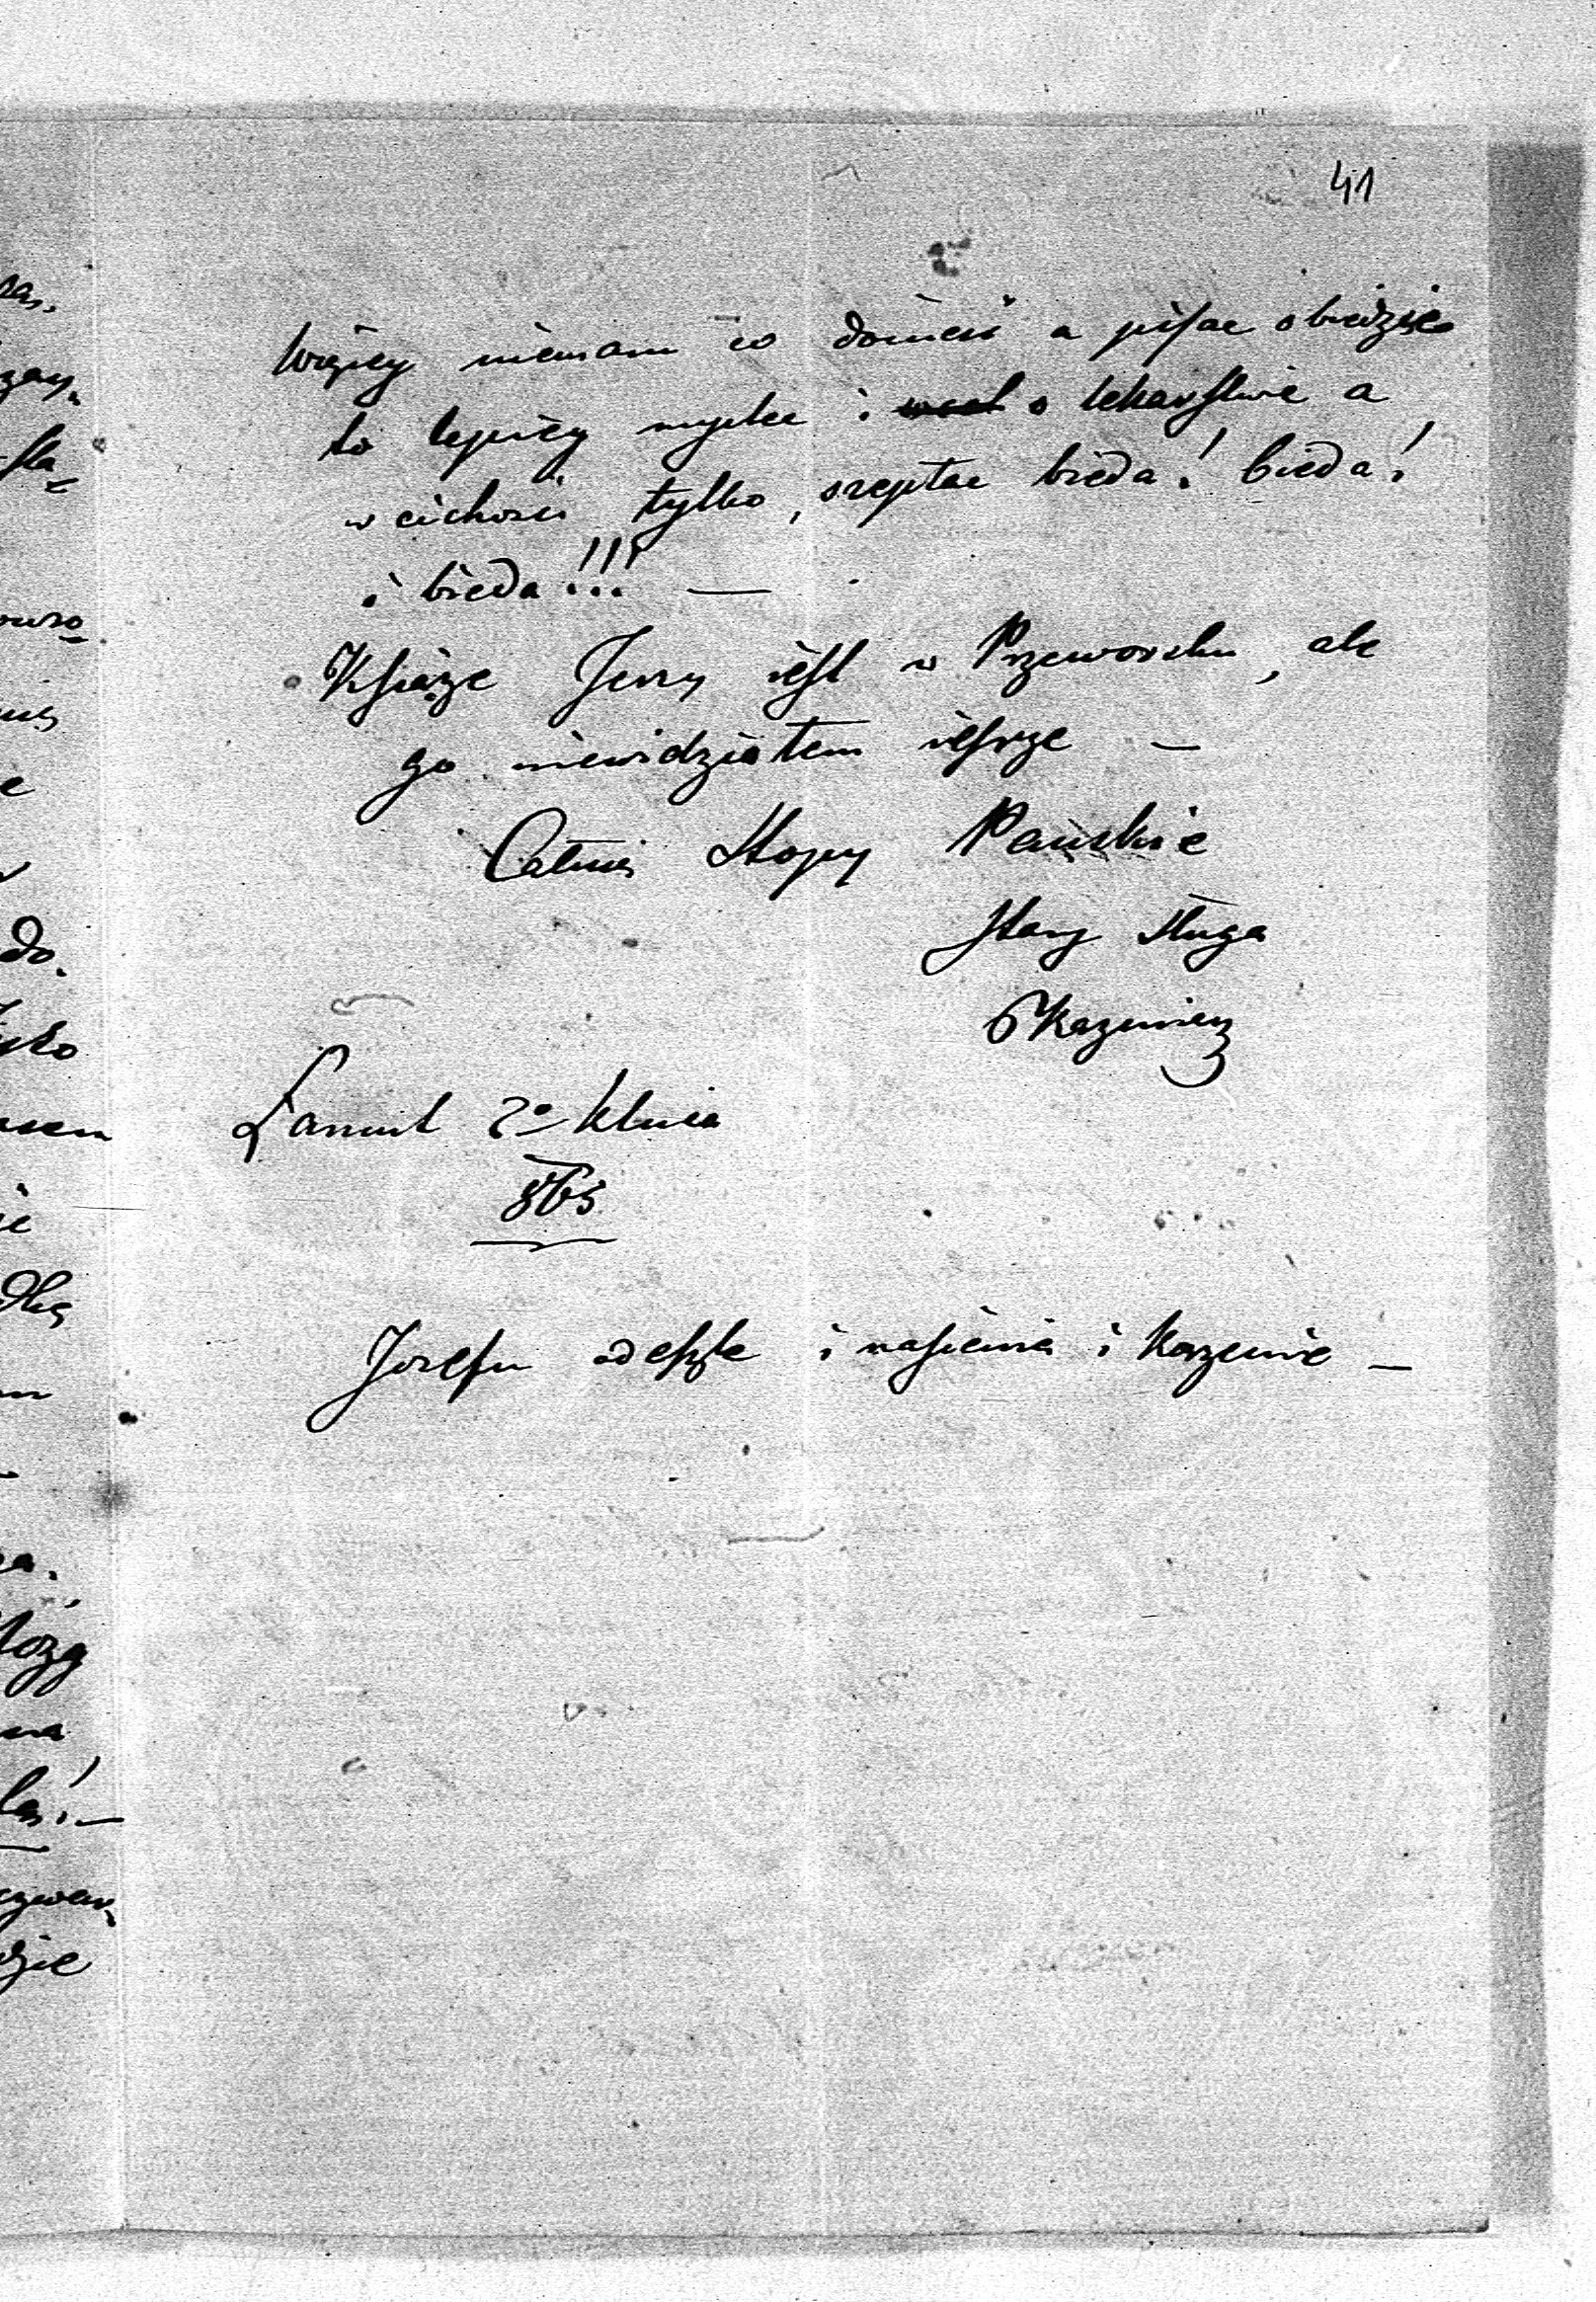 41
Więcy niemam co donieść a pisac obiedzie
to lepiey myslec i o lekarstwie a
w cichosci tylko, szeptac bieda! bieda!
i bieda!!! —
Książe Jerzy iest w Przeworsku, ale
go niewidziałem ieszcze —
Całuię stopy Pańskie
stary sługa
Łancut 2º Kwietnia
865
Jozefu odeszle i nasienia i korzenie —